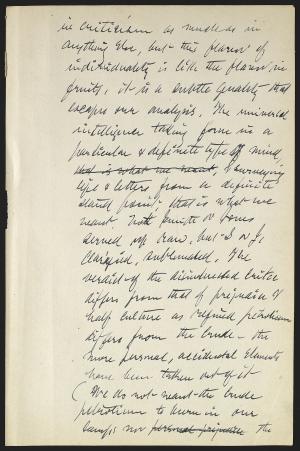 in criticism as much as in
anything else, but this flavor of
individuality is like the flavor in
fruits, it is a subtle quality that
escapes our analysis. The universal
intelligence taking form in a
particular & definite type of mind,
that is what we want, & surveying
life & letters from a definite
stand point - that is what we
want. Not Smith or Jones
served up raw, but S or J,
clarified, sublimated. The
verdict of the disinterested critic
differs from that of prejudice &
half culture as refined petroleum
differs from the crude - the
more personal, accidental elements
have been taken out of it
(We do not want the crude
petroleum to burn in our
lamps nor personal prejudice the